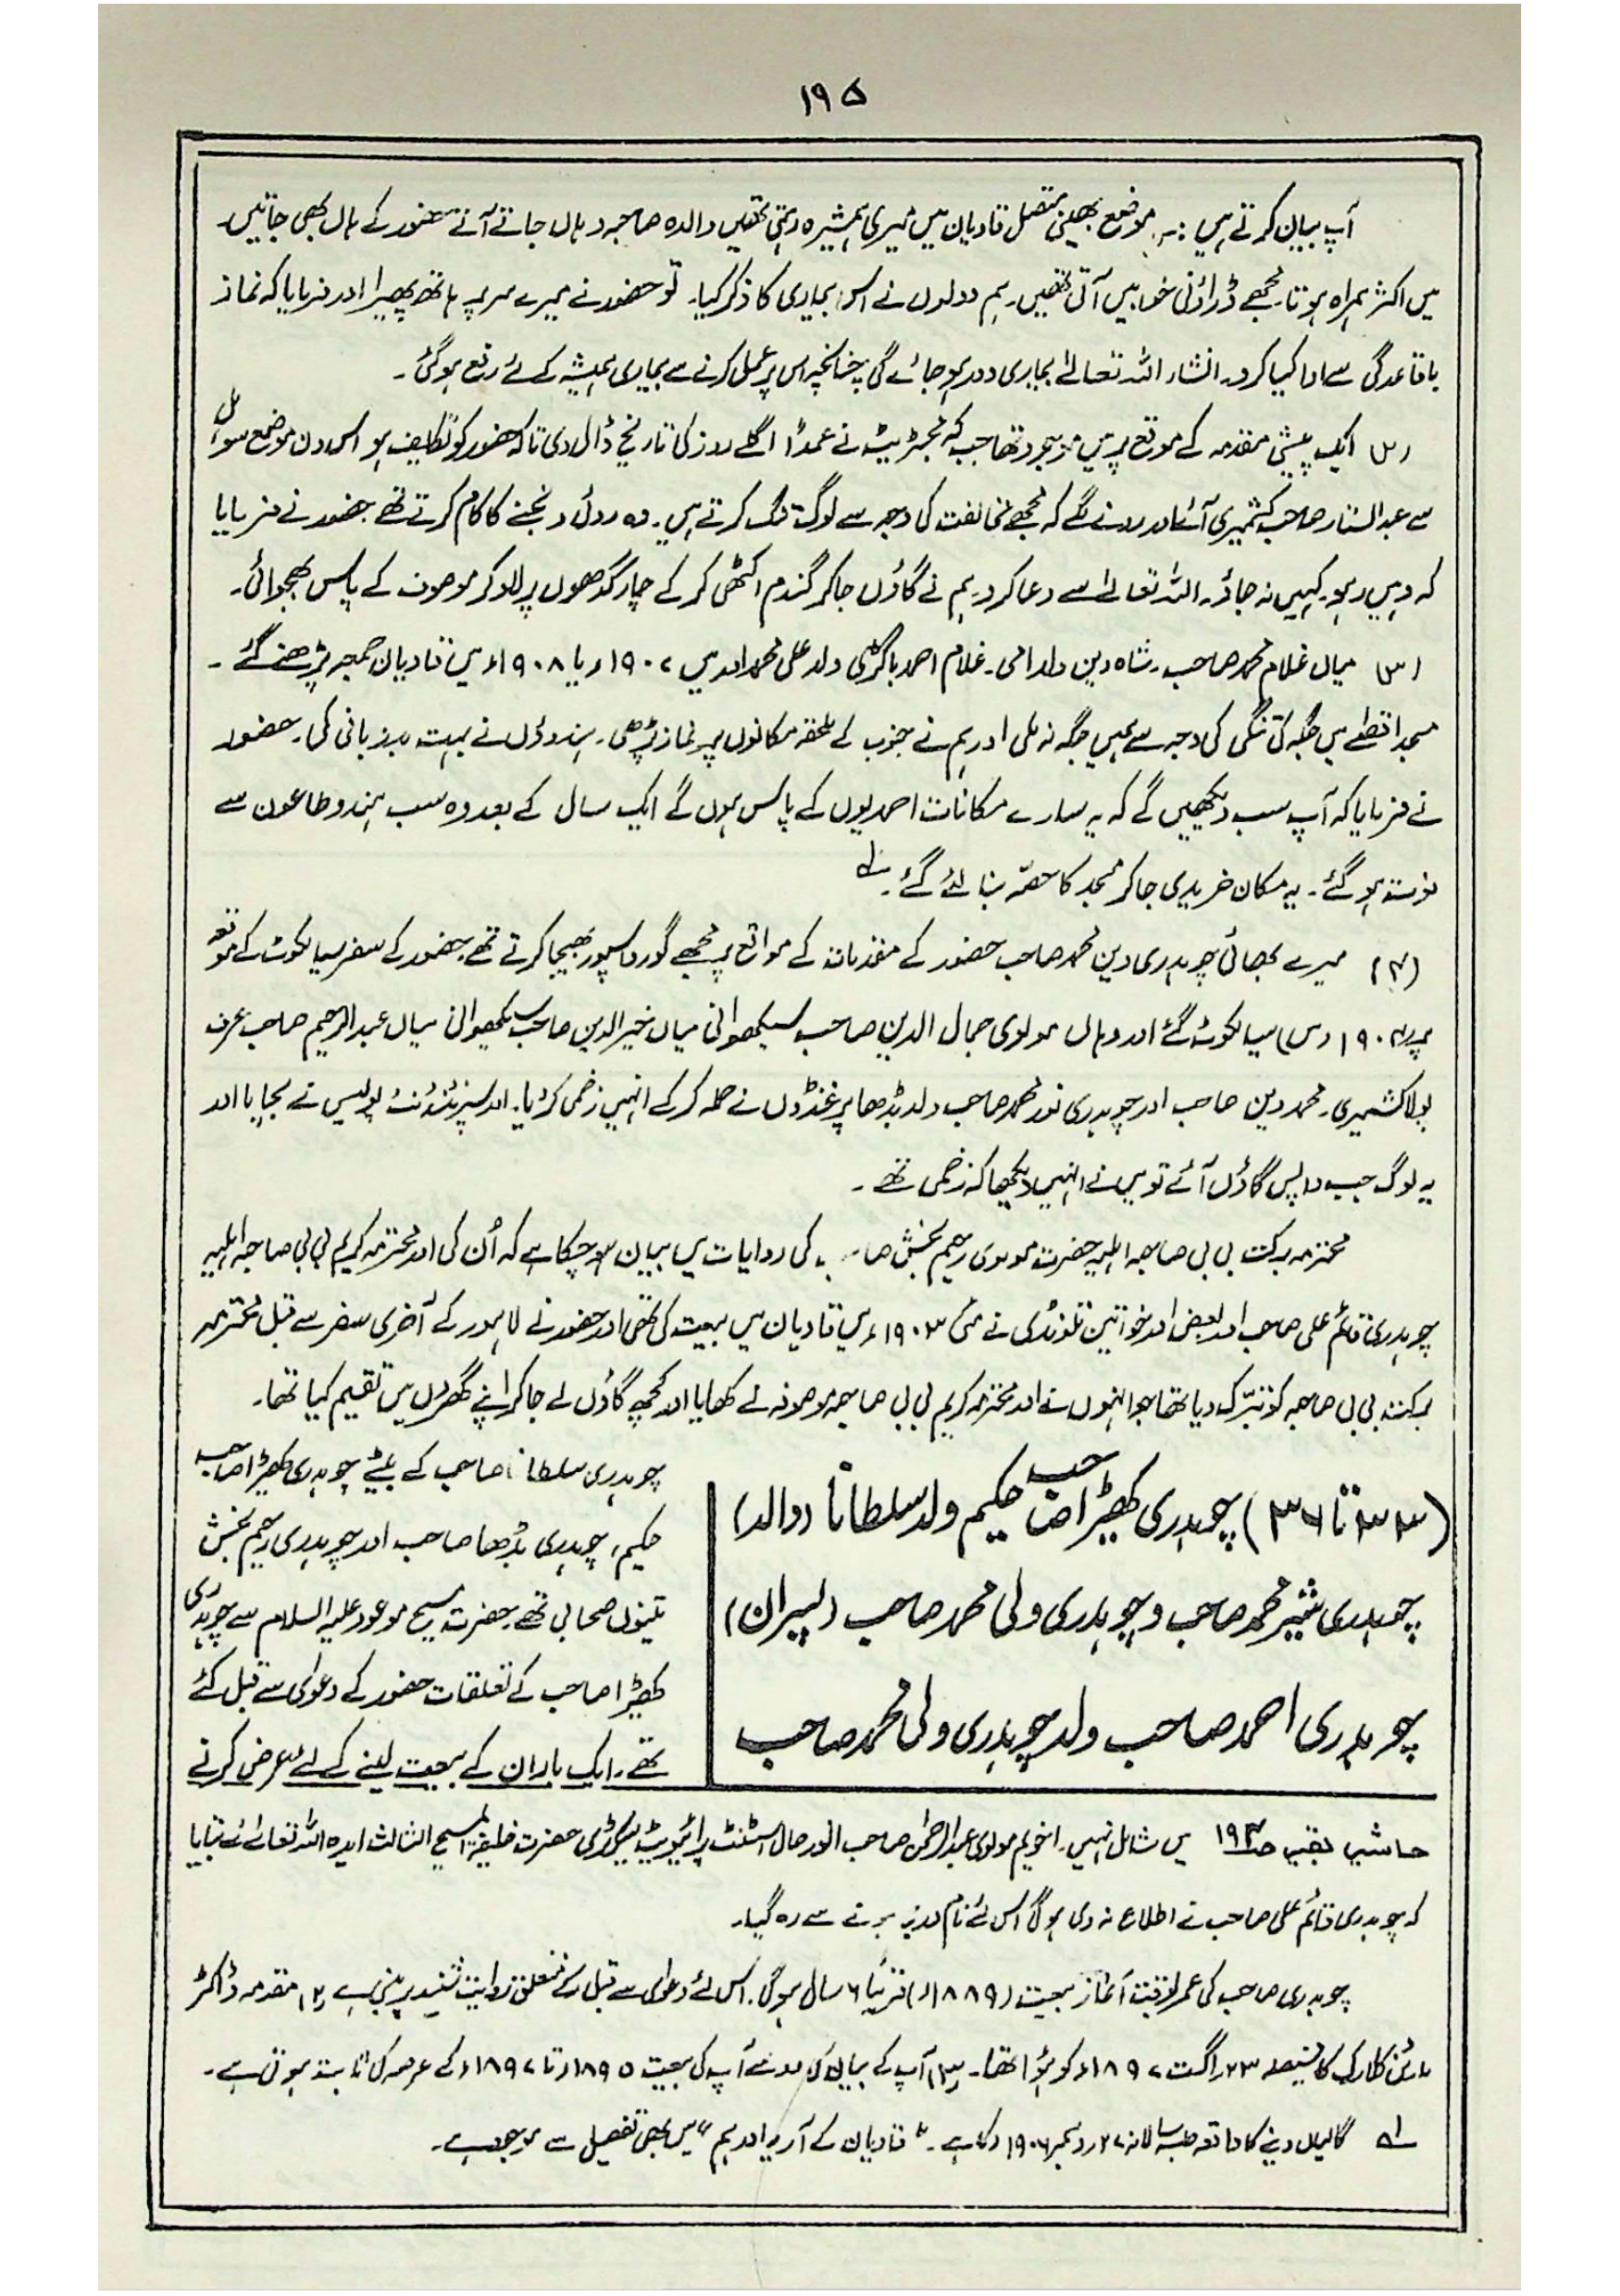 ۱۹۵
آپ بیان کرتے ہیں :۔ موضع بھینی متصل قادیان میں میری ہمشیرہ رہتی تھیں والدہ صاحبہ وہاں جاتے آتے حضور کے ہاں بھی جاتیں۔
میں اکثر ہمراہ ہوتا۔ مجھے ڈراؤنی خوابیں آتی تھیں۔ ہم دونوں نے اس بیماری کا ذکر کیا۔ تو حضور نے میرے سر پہ ہاتھ پھیرا اور فرمایا کہ نماز
باقاعدگی سے ادا کیا کرو۔ انشاء اللہ تعالیٰ بیماری دور ہو جائے گی چنانچہ اس پر عمل کرنے سے بیماری ہمیشہ کے لئے رفع ہو گئی۔
(۲) ایک پیشی مقدمہ کے موقع پر میں موجود تھا جب کہ مجسٹریٹ نے عمداً اگلے روز کی تاریخ ڈال دی تاکہ حضور کو تکلیف ہو اس دن موضع سوہل
سے عبدالستار صاحب کشمیری آئے اور رونے لگے کہ مجھے مخالفت کی وجہ سے لوگ تنگ کرتے ہیں۔ وہ روئی دھنجنے کا کام کرتے تھے حضور نے فرمایا
کہ وہیں رہو۔ کہیں نہ جاؤ۔ اللہ تعالیٰ سے دعا کرو۔ ہم نے گاؤں جا کر گندم اکٹھی کر کے چار گدھوں پر لاد کر موصوف کے پاس بھجوائی۔
(۳) میاں غلام محمد صاحب۔ شاہ دین ولد امی۔ غلام احمد باکڑی ولد علی محمد اور میں ۱۹۰۷ء یا ۱۹۰۸ء میں قادیان جمعہ پڑھنے گئے۔
مسجد اقصٰے میں جگہ کی تنگی کی وجہ سے ہمیں جگہ نہ ملی اور ہم نے جنوب کے ملحقہ مکانوں پر نماز پڑھی۔ ہندوؤں نے بہت بدزبانی کی۔ حضور
نے فرمایا کہ آپ سب دیکھیں گے کہ یہ سارے مکانات احمدیوں کے پاس ہوں گے ایک سال کے بعد وہ سب ہندو طاعون سے
فوت ہو گئے۔ یہ مکان خریدی جا کر مسجد کا حصّہ بنا لئے گئے۔ لہ
(۴) میرے بھائی چوہدری دین محمد صاحب حضور کے مقدمات کے مواقع پر مجھے گورداسپور بھیجا کرتے تھے۔ حضور کے سفر سیالکوٹ کے موقعہ
پر ۱۹۰۴ (ء میں) سیالکوٹ گئے اور وہاں مولوی جمال الدین صاحب سیکھوانی میاں خیر الدین صاحب سیکھوانی میاں عبدالرحیم صاحب عرف
بولا کشمیری۔ محمد دین صاحب اور چوہدری نور محمد صاحب ولد بڈھا پر غنڈوں نے حملہ کر کے انہیں زخمی کر دیا۔ اور سپرنٹنڈنٹ پولیس نے بچایا اور
یہ لوگ جب واپس گاؤں آئے تو میں نے انہیں دیکھا کہ زخمی تھے۔
محترمہ برکت بی بی صاحبہ اہلیہ حضرت مولوی رحیم بخش صاحب کی روایات میں بیان ہو چکا ہے کہ اُن کی اور محترمہ کریم بی بی صاحبہ اہلیہ
چوہدری قائم علی صاحب اور بعض اور خواتین تلونڈی نے مئی ۱۹۰۳ء میں قادیان میں بیعت کی تھی اور حضور نے لاہور کے آخری سفر سے قبل محترمہ
برکت بی بی صاحبہ کو تبرّک دیا تھا جو انہوں نے اور محترمہ کریم بی بی صاحبہ موصوفہ نے کھایا اور کچھ گاؤں لے جا کر اپنے گھروں میں تقسیم کیا تھا۔
(۳۳ تا ۳۶) چوہدری کھیڑا صاحب حکیم ولد سلطانا (والد)
چوہدری شیر محمد صاحب و چوہدری ولی محمد صاحب (پسران)
چوہدری احمد صاحب ولد چوہدری ولی محمد صاحب
چوہدری سلطانا صاحب کے بیٹے چوہدری کھیڑا صاحب
حکیم، چوہدری بڈھا صاحب اور چوہدری رحیم بخش
تینوں صحابی تھے۔ حضرت مسیح موعود علیہ السلام سے چوہدری
کھیڑا صاحب کے تعلقات حضور کے دعویٰ سے قبل کئے
تھے۔ ایک بار ان کے بیعت لینے کے لئے عرض کرنے
حاشیہ بقیہ صـ۱۹۴ میں شامل نہیں۔ اخویم مولوی عبدالرحمٰن صاحب انور حال اسسٹنٹ پرائیویٹ سیکرٹری حضرت خلیفۃ المسیح الثالث ایدہ اللہ تعالیٰ نے بتایا
کہ چوہدری قائم علی صاحب نے اطلاع نہ دی ہو گی اس لئے نام درج ہونے سے رہ گیا۔
چوہدری صاحب کی عمر بوقت آغاز بیعت (۱۸۸۹ء) قریباً ۶ سال ہو گی۔ اس لئے دعویٰ سے قبل کے متعلق روایت شنید پر مبنی ہے (۲) مقدمہ ڈاکٹر
مارٹن کلارک کا فیصلہ ۲۳؍اگست ۱۸۹۷ء کو ہؤا تھا۔ (۳) آپ کے بیان کی رو سے آپ کی بیعت ۱۸۹۵ء تا ۱۸۹۷ء کے عرصہ کی ثابت ہوتی ہے۔
لہ گالیاں دینے کا واقعہ جلسہ سالانہ ۲۷؍دسمبر ۱۹۰۶ء کا ہے۔ "قادیان کے آریہ اور ہم" میں بھی تفصیل سے موجود ہے۔